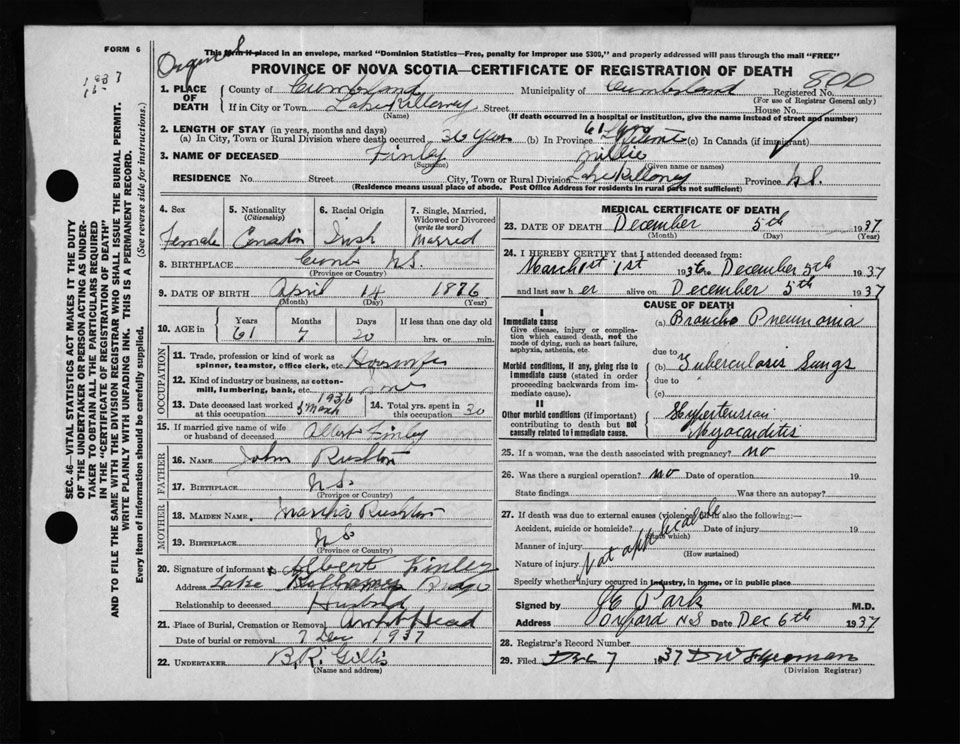 FORM 6
This form if placed in an envelope, marked "Dominion Statistics—Free, penalty for improper use $300," and properly addressed will pass through the mail "FREE"
PROVINCE OF NOVA SCOTIA—CERTIFICATE OF REGISTRATION OF DEATH
1937
SEC. 46—VITAL STATISTICS ACT MAKES IT THE DUTY
OF THE UNDERTAKER OR PERSON ACTING AS UNDER-
TAKER TO OBTAIN ALL THE PARTICULARS REQUIRED
IN THE "CERTIFICATE OF REGISTRATION OF DEATH"
AND TO FILE THE SAME WITH THE DIVISION REGISTRAR WHO SHALL ISSUE THE BURIAL PERMIT.
WRITE PLAINLY WITH UNFADING INK. THIS IS A PERMANENT RECORD.
Every item of information should be carefully supplied. (See reverse side for instructions.)
1. PLACE OF DEATH County of Cumberland Municipality of Cumberland Registered No. 800
(For use of Registrar General only)
If in City or Town Lake Killarney Street House No.
(Name) (If death occurred in a hospital or institution, give the name instead of street and number)
2. LENGTH OF STAY (in years, months and days)
(a) In City, Town or Rural Division where death occurred 36 Years (b) In Province 61 (c) In Canada (if immigrant)
3. NAME OF DECEASED Finley Millie
(Surname) (Given name or names)
RESIDENCE No. Street City, Town or Rural Division Lake Killarney Province N.S.
(Residence means usual place of abode. Post Office Address for residents in rural parts not sufficient)
4. Sex Female
5. Nationality (Citizenship) Canadian
6. Racial Origin Irish
7. Single, Married, Widowed or Divorced (write the word) Married
8. BIRTHPLACE Cumb N.S.
(Province or Country)
9. DATE OF BIRTH April 14 1876
(Month) (Day) (Year)
10. AGE in Years 61 Months 7 Days 20 If less than one day old hrs. or min.
OCCUPATION
11. Trade, profession or kind of work as spinner, teamster, office clerk, etc. Housewife
12. Kind of industry or business, as cotton-mill, lumbering, bank, etc. none
13. Date deceased last worked at this occupation March 1936
14. Total yrs. spent in this occupation 30
15. If married give name of wife or husband of deceased Albert Finley
FATHER
16. NAME John Rushton
17. BIRTHPLACE N.S.
(Province or Country)
MOTHER
18. MAIDEN NAME Martha Rushton
19. BIRTHPLACE N.S.
(Province or Country)
20. Signature of informant x Albert Finley
Address Lake Killarney
Relationship to deceased Husband
21. Place of Burial, Cremation or Removal Head
Date of burial or removal 7 Dec 1937
22. UNDERTAKER B.R. Gillis
(Name and address)
MEDICAL CERTIFICATE OF DEATH
23. DATE OF DEATH December 5th 1937
(Month) (Day) (Year)
24. I HEREBY CERTIFY that I attended deceased from:
March 1st 1936 to December 5th 1937
and last saw her alive on December 5th 1937
CAUSE OF DEATH
I
Immediate cause
Give disease, injury or complication which caused death, not the mode of dying, such as heart failure, asphyxia, asthenia, etc.
(a) Broncho Pneumonia
due to
Morbid conditions, if any, giving rise to immediate cause (stated in order proceeding backwards from immediate cause).
(b) Tuberculosis Lungs
due to
(c)
II
Other morbid conditions (if important) contributing to death but not causally related to immediate cause.
Hypertension
Myocarditis
25. If a woman, was the death associated with pregnancy? no
26. Was there a surgical operation? no Date of operation 19
State findings Was there an autopsy?
27. If death was due to external causes (violence) fill in also the following:—
Accident, suicide or homicide? Date of injury 19
(State which)
Manner of injury
(How sustained)
Nature of injury
Not applicable
Specify whether injury occurred in industry, in home, or in public place
Signed by J E Park M.D.
Address Oxford N.S Date Dec 6th 1937
28. Registrar's Record Number
29. Filed Dec 7 1937
(Division Registrar)